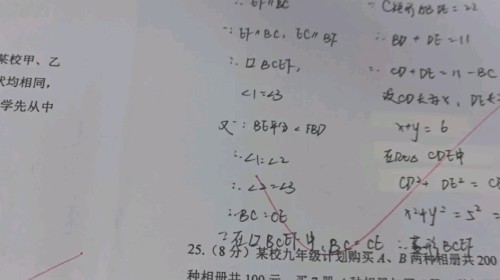 ∴ EF∥BC
∵ EF∥BC, EC∥BF
∴ ▱BCEF,
∠1=∠3
又∵ BE平分∠FBD
∴ ∠1=∠2
∴ ∠2=∠3
∴ BC=CE
∵ 在▱BCEF中, BC=CE ∴ 菱形BCEF
=22
∴ BD+DE=11
∴ CD+DE=11-BC
设CD长为x, DE长
x+y=6
在Rt△CDE中
CD²+DE²=C
x²+y²=5²=
某校甲、乙
状均相同,
学先从中
25.(8分)某校九年级计划购买A、B两种相册共200
种相册共100元